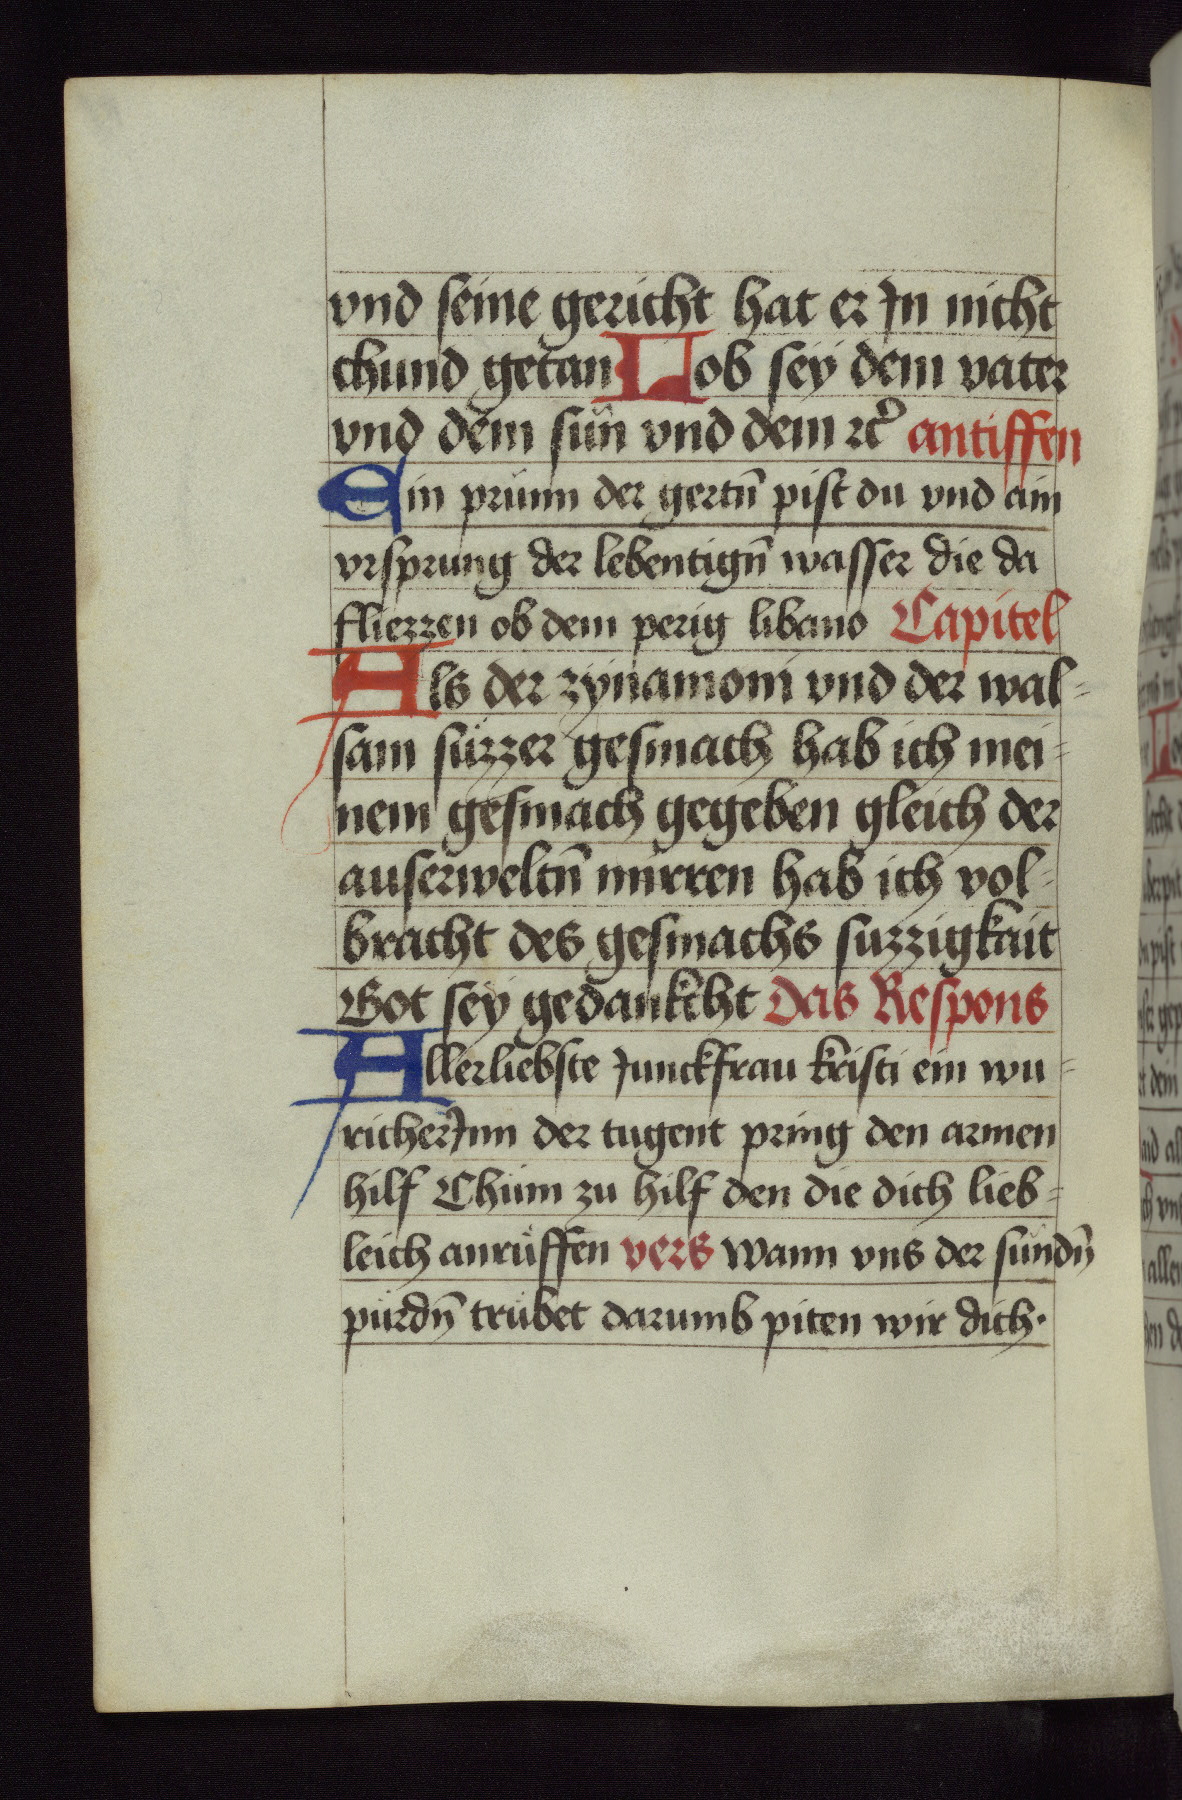 vnd seine gericht hat er Jn nicht
chund getan Lob sey dem vater
vnd dem sun vnd dem ꝛc̉ antiffen
Ein prunn der gertn̄ pist du vnd ain
vrsprung der lebentign̄ wasser die da
fliezzen ob dem perig libano Capitel
Als der zynamom vnd der wal-
sam süzzer gesmach hab ich mei-
nem gesmach gegeben gleich der
auserweltn̄ mirren hab ich vol-
bracht des gesmachs suzzigkait
Got sey gedankcht Das Respons
Allerliebste Junckfrau kristi ein wu-
richerJnn der tugent pring den armen
hilf Chüm zu hilf den die dich lieb-
leich anrüffen vers Wann vns der sündn̄
pürdn̄ trübet darumb piten wir dich.